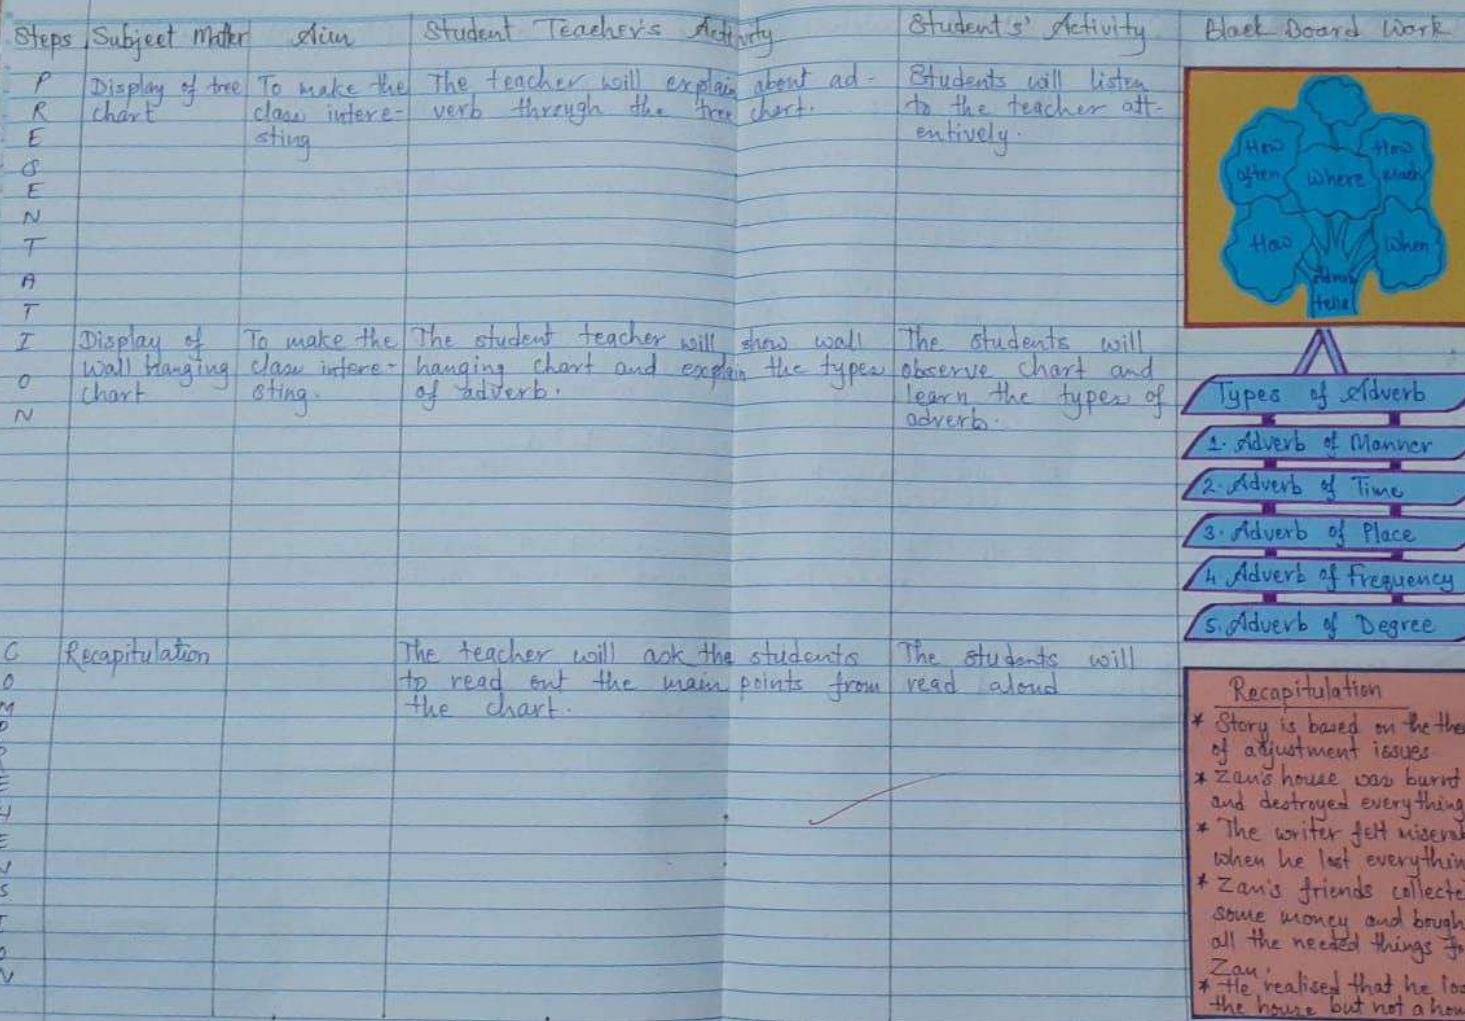 Steps
Subject Matter
Aim
Student Teacher's Activity
Students' Activity
Black Board Work
P
R
E
S
E
N
T
A
T
I
O
N
Display of tree
chart
To make the
class intere-
sting
The teacher will explain about ad-
verb through the tree chart.
Students will listen
to the teacher att-
entively.
How
often
Where
How
much
How
When
Display of
Wall Hanging
chart
To make the
class intere-
sting.
The student teacher will show wall
hanging chart and explain the types
of adverb.
The students will
observe chart and
learn the types of
adverb.
Types of Adverb
1. Adverb of Manner
2. Adverb of Time
3. Adverb of Place
4. Adverb of Frequency
5. Adverb of Degree
C
O
M
P
R
E
H
E
N
S
I
O
N
Recapitulation
The teacher will ask the students
to read out the main points from
the chart.
The students will
read aloud
Recapitulation
* Story is based on the
of adjustment issues
* Zan's house was burnt
and destroyed everything
* The writer felt
when he lost
* Zan's friends
some money and
all the needed things
Zan.
* He realised that he
the house but not a